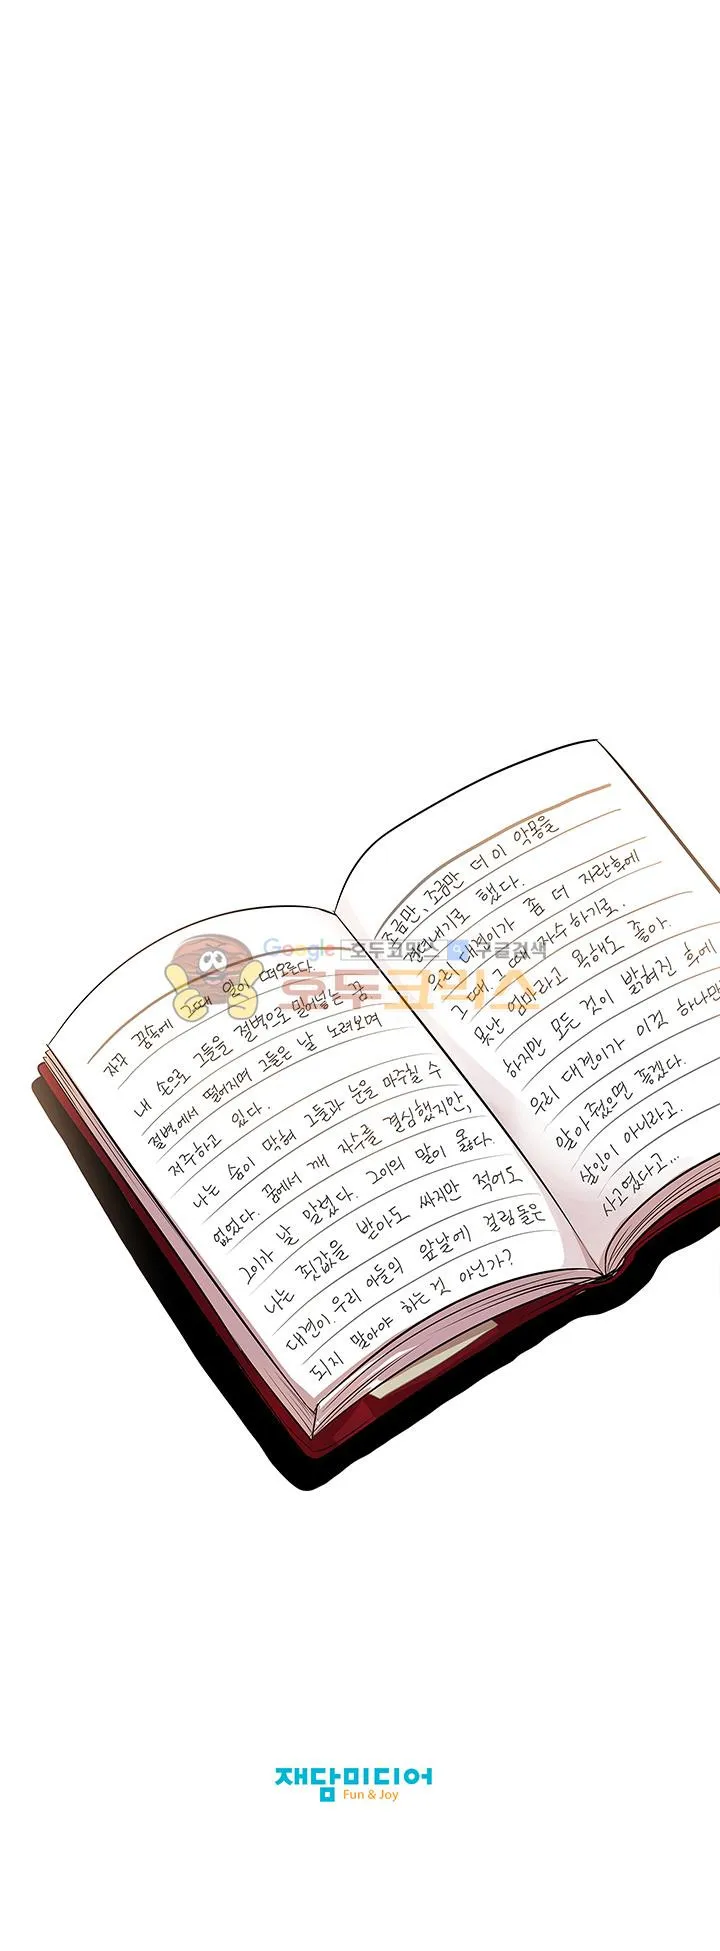 자꾸 꿈속에 그때 일이 떠오른다.
내 손으로 그들을 절벽으로 밀어넣는 꿈.
절벽에서 떨어지며 그들은 날 노려보며
저주하고 있다.
나는 숨이 막혀 그들과 눈을 마주칠 수
없었다. 꿈에서 깨 자수를 결심했지만,
그이가 날 말렸다. 그이의 말이 옳다.
나는 죗값을 받아도 싸지만 적어도
대견이. 우리 아들의 앞날에 걸림돌은
되지 말아야 하는 것 아닌가?
조금만, 조금만 더 이 악몽을
견뎌내기로 했다.
우리 대견이가 좀 더 자란후에
그 때. 그 때 자수하기로.
못난 엄마라고 욕해도 좋아.
하지만 모든 것이 밝혀진 후에
우리 대견이가 이것 하나만
알아줬으면 좋겠다.
살인이 아니라고.
사고였다고...
Google 호두코믹스 구글검색
호두코믹스
재담미디어
Fun & Joy